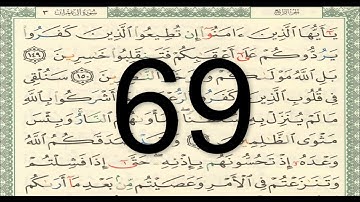 الجزء الرابع سورة آل عمران ٣
يَٰٓأَيُّهَا ٱلَّذِينَ ءَامَنُوٓا۟ إِن تُطِيعُوا۟ ٱلَّذِينَ كَفَرُوا۟
يَرُدُّوكُمْ عَلَىٰٓ أَعْقَٰبِكُمْ فَتَنقَلِبُوا۟ خَٰسِرِينَ ١٤٩
بَلِ ٱللَّهُ مَوْلَىٰكُمْ ١٥٠ سَنُلْقِى
فِى قُلُوبِ ٱلَّذِينَ أَشْرَكُوا۟ بِٱللَّهِ
مَا لَمْ يُنَزِّلْ بِهِۦ ٱلنَّارُ وَبِئْسَ
مَثْوَى ٱلظَّٰلِمِينَ صَدَقَكُمُ ٱللَّهُ
وَعْدَهُۥٓ إِذْ تَحُسُّونَهُم بِإِذْنِهِۦ حَتَّىٰٓ إِذَا فَشِلْتُمْ
وَتَنَٰزَعْتُمْ فِى ٱلْأَمْرِ وَعَصَيْتُم مِّنۢ بَعْدِ مَآ أَرَىٰكُم
69